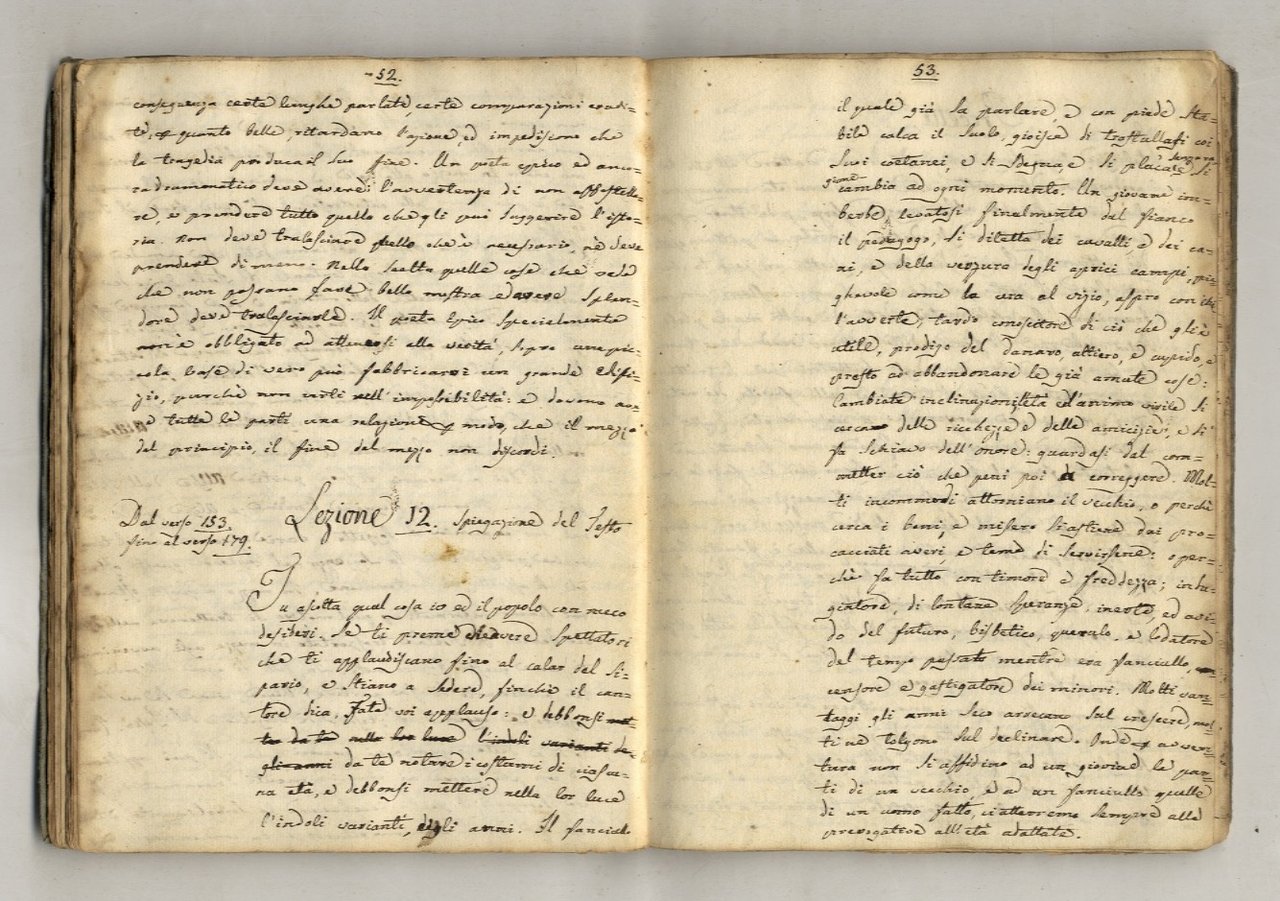 52.
conseguenza certe lunghe parlate, certe comparazioni erudi=
te, quanto belle, ritardano l'azione, ed impediscono che
la tragedia produca il suo fine. Un poeta epico ed anco=
ra drammatico deve avere l'avvertenza di non affastella=
re, e prendere tutto quello che gli può suggerire l'isto=
ria. Non deve tralasciare quello che è necessario, nè deve
prendere di meno. Nella scelta quelle cose che vede
che non possano fare bella mostra ed avere splen=
dore deve tralasciarle. Il poeta epico specialmente
non è obbligato ad attenersi alla verità, sopra una pic=
cola base di vero può fabbricarvi un grande edifi=
zio, purchè non urti nell'impossibilità: e devono av=
e tutte le parti una relazione, modo, che il mezzo
dal principio, il fine dal mezzo non discordi.
Dal verso 153.
fino al verso 179.
Lezione 12. Spiegazione del Testo
Tu ascolta qual cosa io ed il popolo con meco
desideri. Se ti preme avere spettatori
che ti applaudiscano fino al calar del si=
pario, e stiano a sedere, finchè il can=
tore dica, fate voi applauso: e debbonsi met=
ter da te nella lor luce l'indoli varianti de=
gli anni da te notare i costumi di ciascu=
na età, e debbonsi mettere nella lor luce
l'indoli varianti, degli anni. Il fanciullo
53.
il quale già sa parlare, e con piede sta=
bile calca il suolo, gioisce di trastullarsi coi
suoi coetanei, e si sdegna, e si placa senza ra
gione e si
cambia ad ogni momento. Un giovane im=
berbe, levatosi finalmente dal fianco
il pedagogo, si diletta dei cavalli, e dei ca=
ni, e della verzura degli aprici campi, pie=
ghevole come la cera al vizio, aspro con chi
l'avverte, tardo conoscitore di ciò che gli è
utile, prodigo del danaro, altiero, e cupido, e
presto ad abbandonare le già amate cose:
Cambiate inclinazioni, l'età e l'animo virile si
cerca delle ricchezze e delle amicizie, e si
fa schiavo dell'onore: guardasi dal com=
metter ciò che peni poi a correggere. Mol=
ti incommodi attorniano il vecchio, o perchè
cerca i beni, e misero s'astiene dai pro=
cacciati averi, e teme di servirsene: o per=
chè fa tutto con timore e freddezza; indu=
giatore, di lontane speranze, inerte, ed avi=
do del futuro, bisbetico, querulo, e lodatore
del tempo passato mentre era fanciullo,
censore e gastigatore dei minori. Molti van=
taggi gli anni seco arrecano sul crescere, mol=
ti ne tolgono sul declinare. Onde avven=
tura non si affidino ad un giovine le par=
ti di un vecchio, e ad un fanciullo quelle
di un uomo fatto, ci atterremo sempre alle
prerogative all'età adattate.